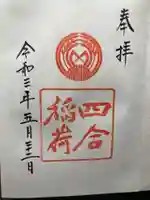 奉拝
四合
稲荷
令和三年五月十二日